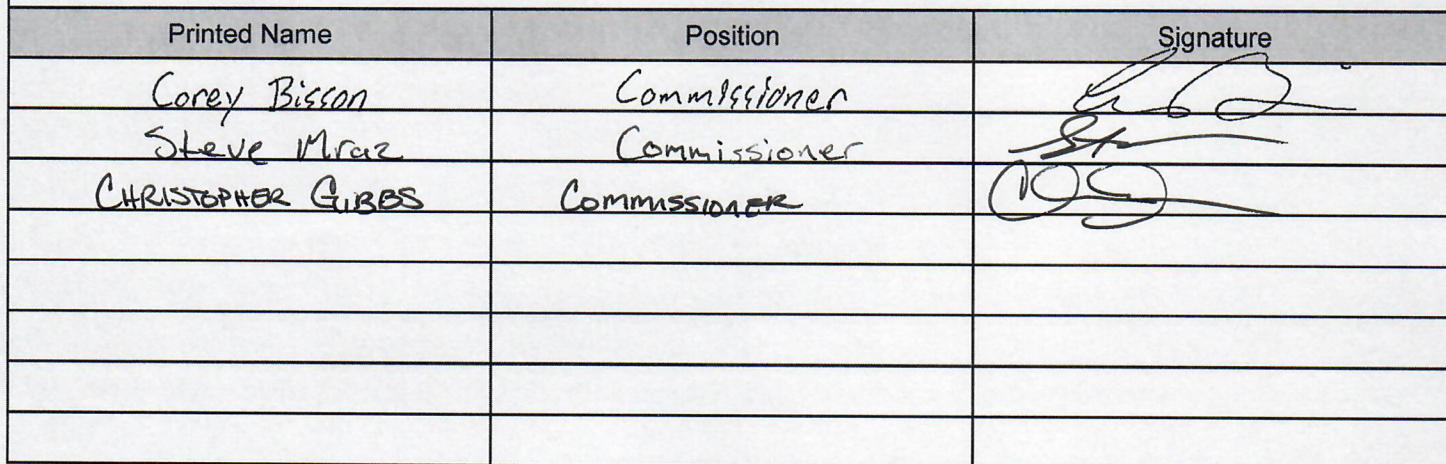 Printed Name Position Signature
Corey Bisson Commissioner
Steve Mraz Commissioner
CHRISTOPHER GIBBS COMMISSIONER